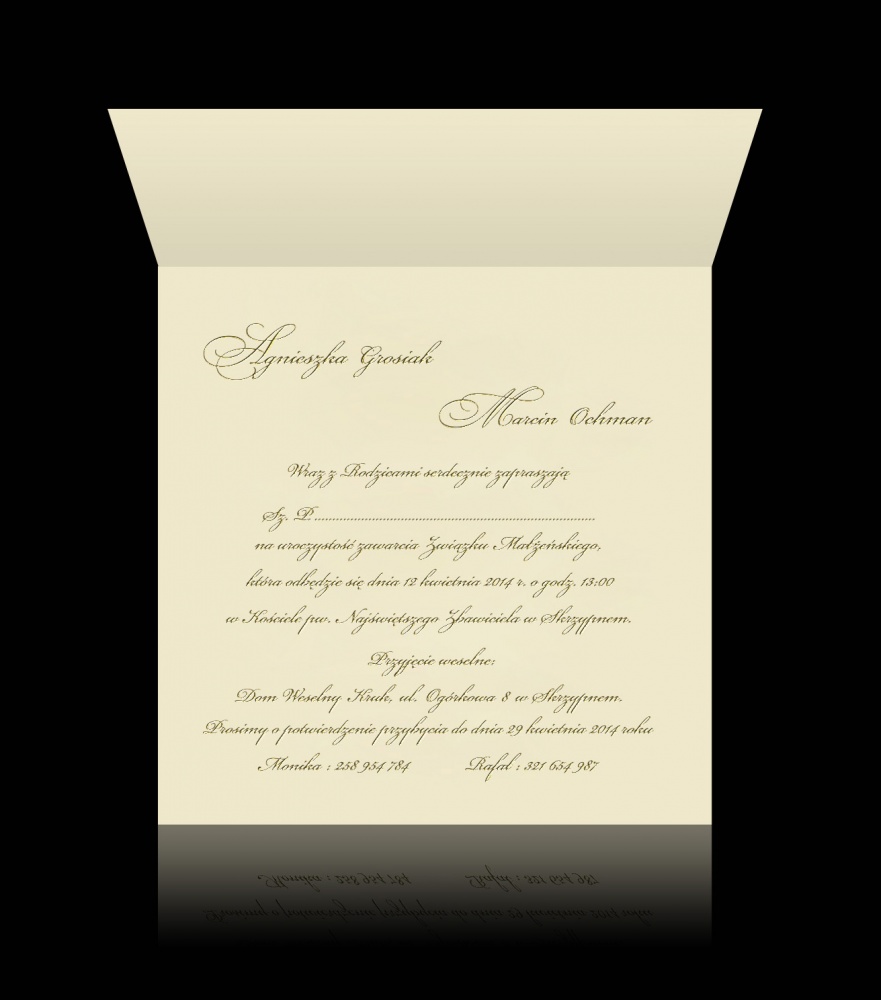 Agnieszka Grosiak
Marcin Ochman
Wraz z Rodzicami serdecznie zapraszają
Sz. P.......................................................................................................
na uroczystość zawarcia Związku Małżeńskiego,
która odbędzie się dnia 12 kwietnia 2014 r. o godz. 13:00
w Kościele pw. Najświętszego Zbawiciela w Skrzypnem.
Przyjęcie weselne:
Dom Weselny Kruk, ul. Ogórkowa 8 w Skrzypnem.
Prosimy o potwierdzenie przybycia do dnia 29 kwietnia 2014 roku
Monika : 258 954 784 Rafał : 321 654 987